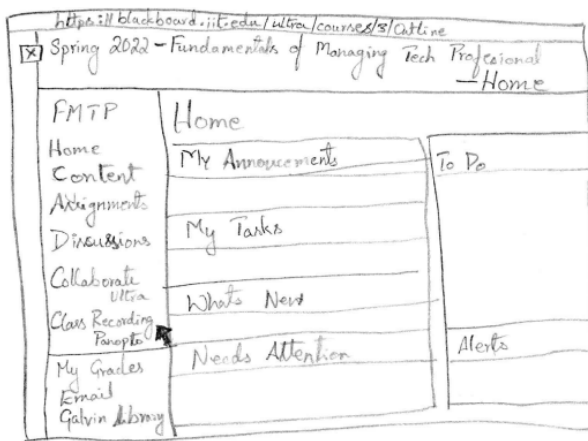 https://blackboard.iit.edu/ultra/courses/3/Outline
Spring 2022 - Fundamentals of Managing Tech Profesional
- Home
FMTP
Home
Content
Assignments
Discussions
Collaborate
Ultra
Class Recording
Panopto
My Grades
Email
Galvin Library
Home
My Annoucements
My Tasks
Whats New
Needs Attention
To Do
Alerts